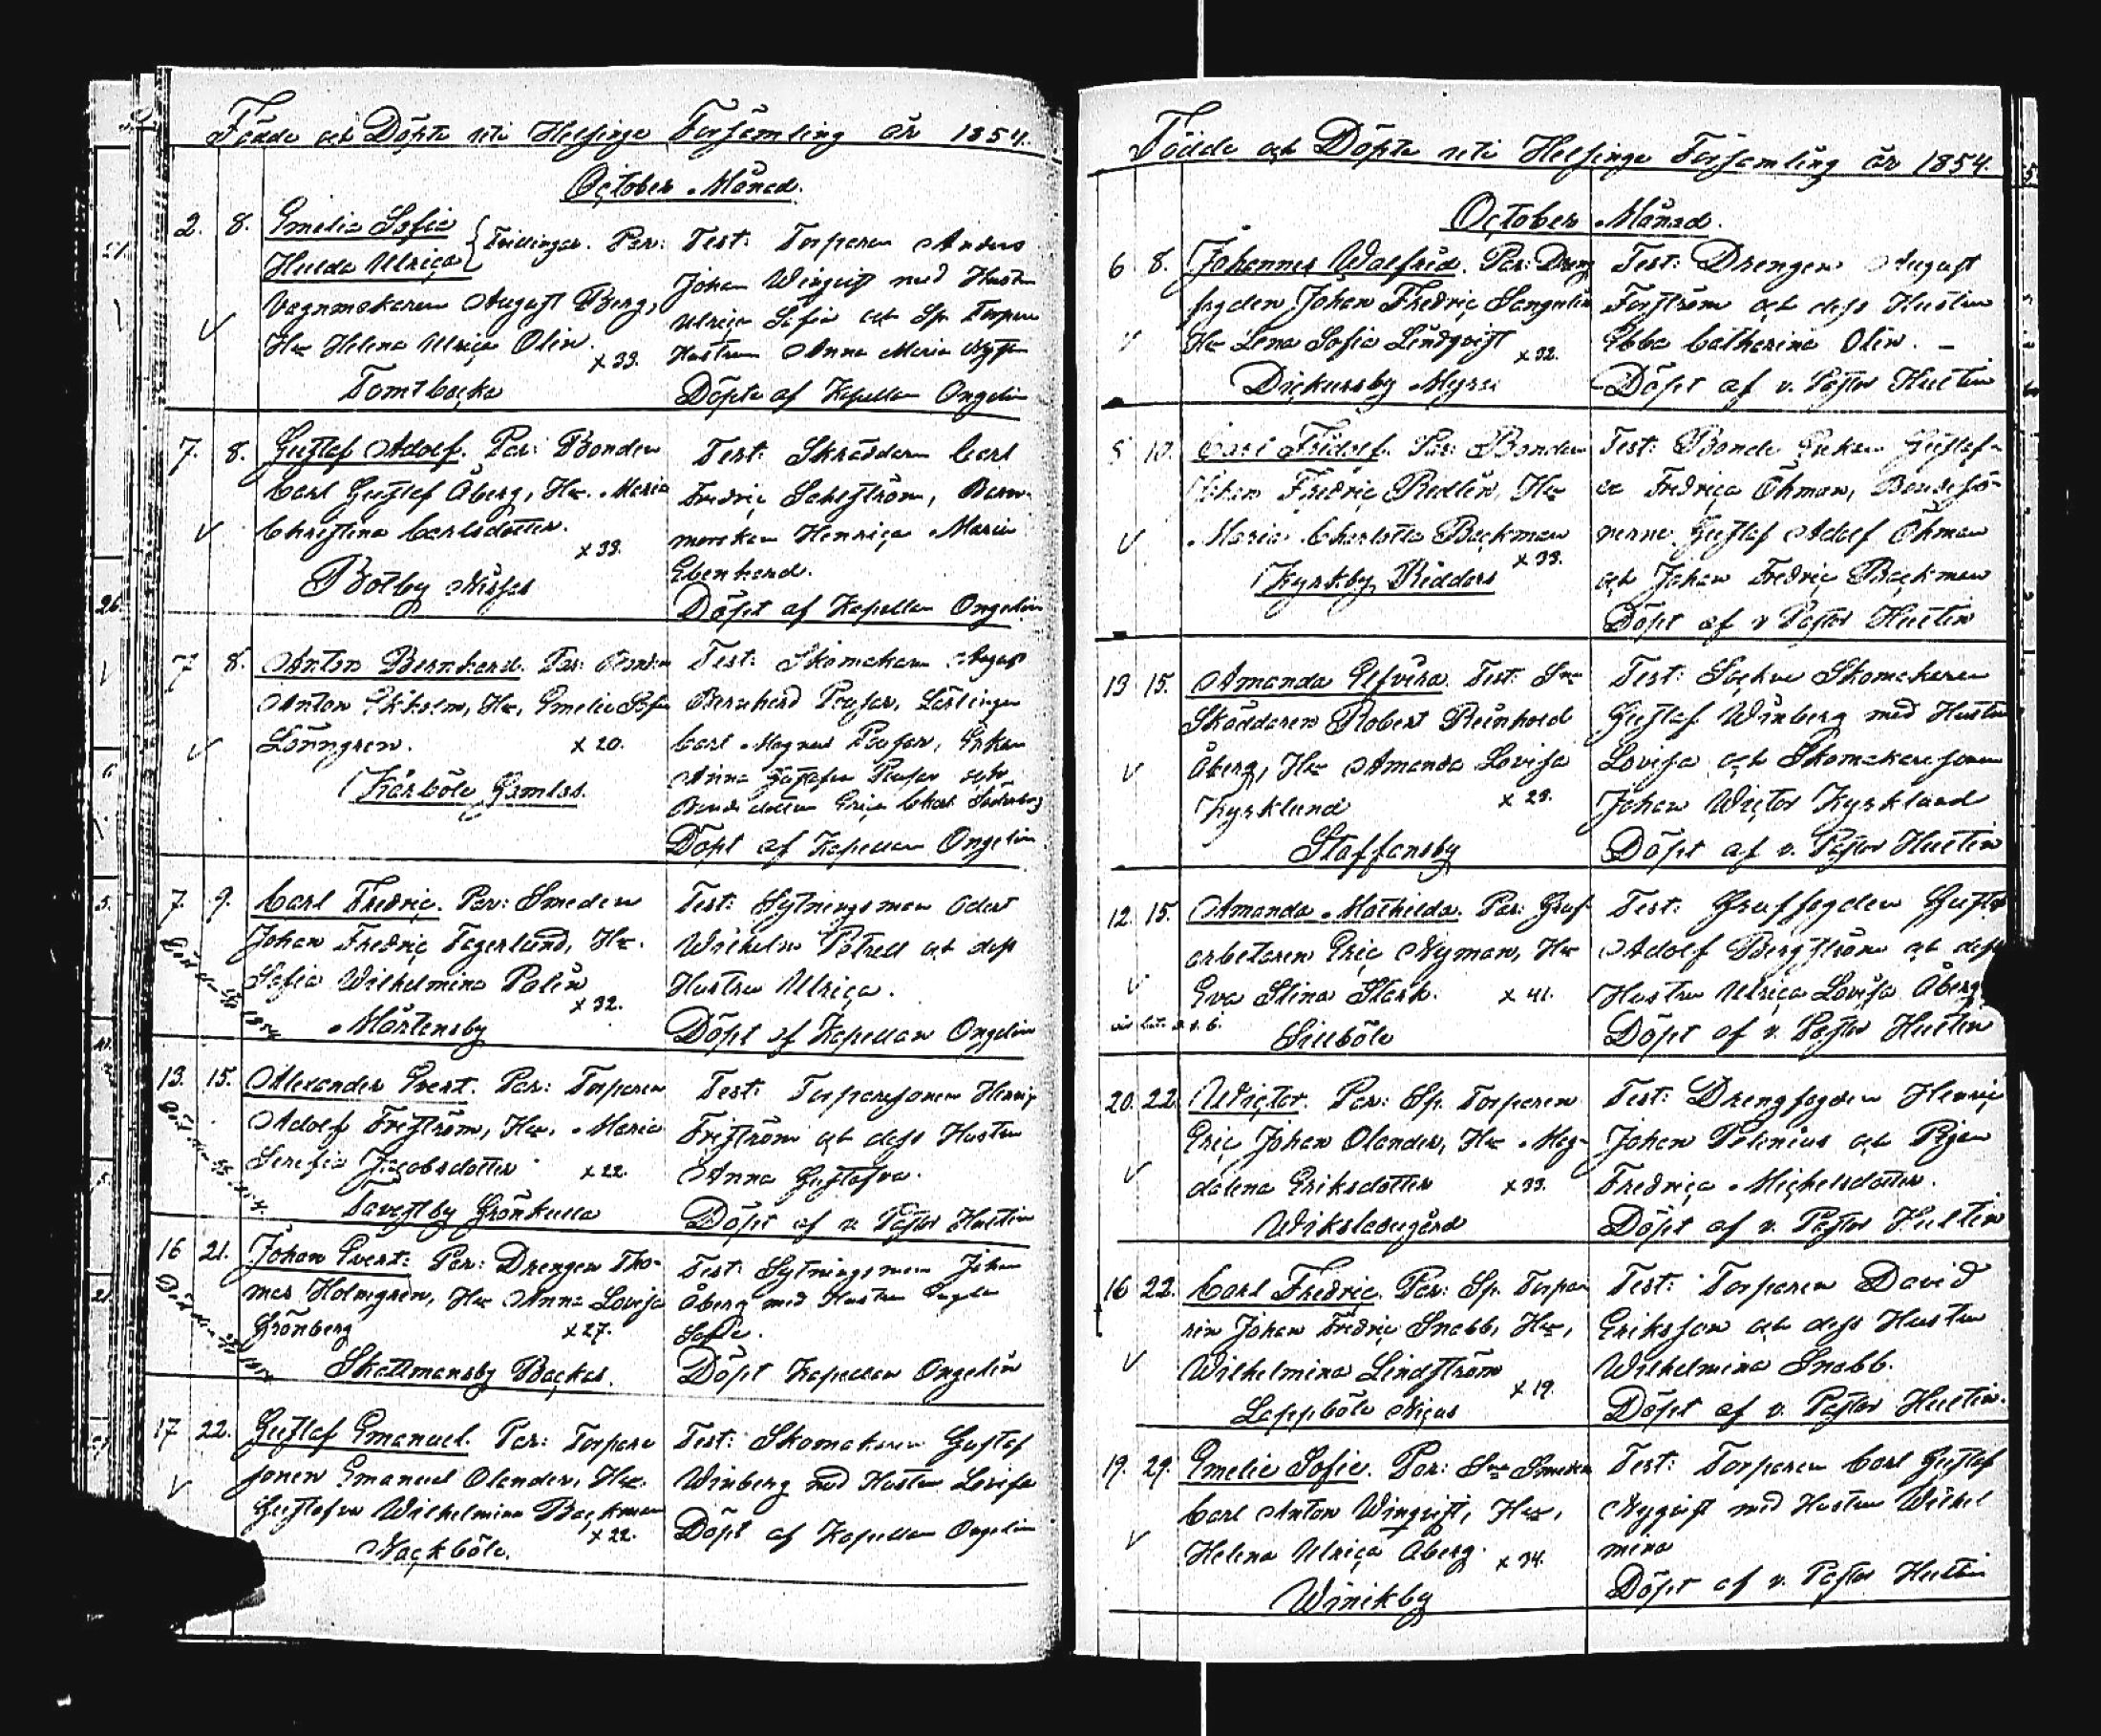 Födde och Döpte uti Helsinge Församling år 1854.
October Månad.
2. 8. Emelia Sofia
Hulda Ulrica Tvillingar. Par:
Vagnmakaren August Berg,
Hu Helena Ulrica Olin.
x 33.
Tomtbacka
Test: Torparen Anders
Johan Winqvist med Hustru
Ulrica Sofia och Sp. Torpare
Hustrun Anna Maria
Döpte af Kapellan Ongelin
7. 8. Gustaf Adolf. Par: Bonden
Carl Gustaf Åberg, Hu. Maria
Christina Carlsdotter.
x 33.
Botby Nissas
Test: Skräddarn Carl
Fredric Sahlström, Barn-
morskan Henrica Maria
Ebenhard.
Döpt af Kapellan Ongelin
7 8. Anton Bernhard. Par: Bonden
Anton Ekholm, Hu, Emelie Sofia
Lönngren. x 20.
Kårböle Gamlas.
Test: Skomakaren August
Bernhard Lärlingen
Carl Magnus Enkan
Anna Gustafva och
Bondedottren Erica Charl. Söderberg
Döpt af Kapellan Ongelin
7. 9. Carl Fredric. Par: Smeden
Johan Fredric Fagerlund, Hu.
Sofia Wilhelmina Palin
x 32.
Mårtensby
Test: Sytningsman Adert
Wilhelm Petrell och dess
Hustru Ulrica.
Döpt af Kapellan Ongelin
13. 15. Alexander Evert. Par: Torparen
Adolf Friström, Hu. Maria
Serafia Jacobsdotter x 22.
Tavastby Grönkulla
Test: Torparesonen Henric
Friström och dess Hustru
Anna Gustafva.
Döpt af v. Pastor Hultin
16 21. Johan Evert: Par: Drengen Tho-
mas Holmgren, Hu Anna Lovisa
Grönberg x 27.
Skattmansby Backas.
Test: Sytningsman Johan
Åberg med Hustru
Sofia.
Döpt Kapellan Ongelin
17 22. Gustaf Emanuel. Par: Torpare
sonen Emanuel Olander, Hu.
Gustafva Wilhelmina Backman
x 22.
Nackböle.
Test: Skomakaren Gustaf
Winberg med Hustru Lovisa
Döpt af Kapellan Ongelin
Födde och Döpte uti Helsinge Församling år 1854.
October Månad.
6 8. Johannes Walfrid. Par: Dreng
fogden Johan Fredric Sangelin
Hu Lena Sofia Lindqvist x 32.
Dickursby Myras
Test: Drengen August
Forström och dess Hustru
Ebba Catharina Olin. —
Döpt af v. Pastor Hultin
5 10. Carl Fridolf. Par: Bonden
Johan Fredric Redlin, Hu
Maria Charlotta Backman
x 33.
Kyrkby Riddars
Test: Bonde Enkan Gustaf-
va Fredrica Öhman, Bondesö-
nerne Gustaf Adolf Öhman
och Johan Fredric Backman
Döpt af v Pastor Hultin
13 15. Amanda Elfvira. Test: Sn
Skäddaren Robert Reinhold
Åberg, Hu Amanda Lovisa
Kyrklund x 23.
Staffansby
Test: Sockne Skomakaren
Gustaf Winberg med Hustru
Lovisa och Skomakaresonen
Johan Wictor Kyrklund
Döpt af v. Pastor Hultin
12. 15. Amanda Mathilda. Par: Gruf-
arbetaren Eric Nyman, Hu
Eva Stina Stark. x 41.
Sillböle
Test: Gruffogden Gustaf
Adolf Bergström och dess
Hustru Ulrica Lovisa Åberg
Döpt af v. Pastor Hultin
20. 22. Wictor. Par: Sp. Torparen
Eric Johan Olander, Hu Mag-
dalena Eriksdotter x 33.
Wiksladugård
Test: Drengfogden Henric
Johan Polenius och Pigan
Fredrica Michelsdotter.
Döpt af v. Pastor Hultin
16 22. Carl Fredric. Par: Sp. Torpa-
ren Johan Fredric Snabb, Hu,
Wilhelmina Lindström
x 19.
Lappböle Nigus
Test: Torparen David
Eriksson och dess Hustru
Wilhelmina Snabb.
Döpt af v. Pastor Hultin.
19. 29. Emelie Sofie. Par: Sne Smeden
Carl Anton Winqvist, Hu,
Helena Ulrica Åberg. x 34.
Winikby
Test: Torparen Carl Gustaf
Nyqvist med Hustru Wilhel
mina
Döpt af v. Pastor Hultin